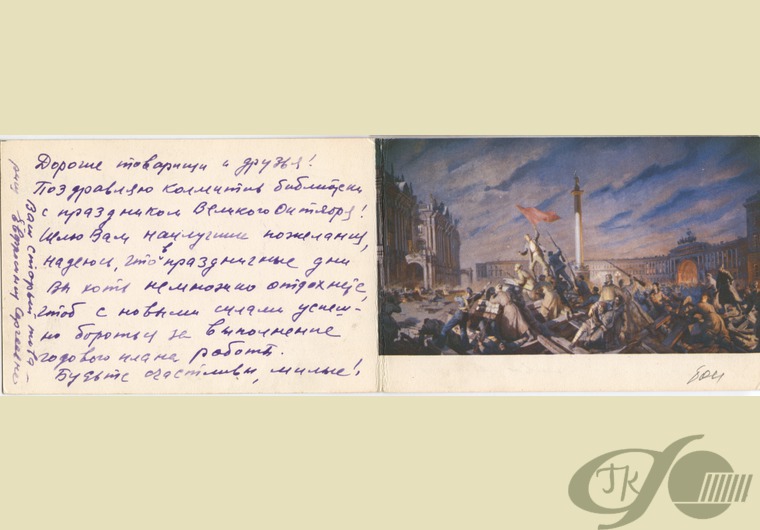 Дорогие товарищи и друзья!
Поздравляю коллектив библиотеки
с праздником Великого Октября!
Шлю Вам наилучшие пожелания,
надеюсь, что в праздничные дни
вы хоть немножко отдохнёте,
чтоб с новыми силами успеш-
но бороться за выполнение
годового плана работы.
Будьте счастливы, милые!
Ваш старый това-
рищ
ГК